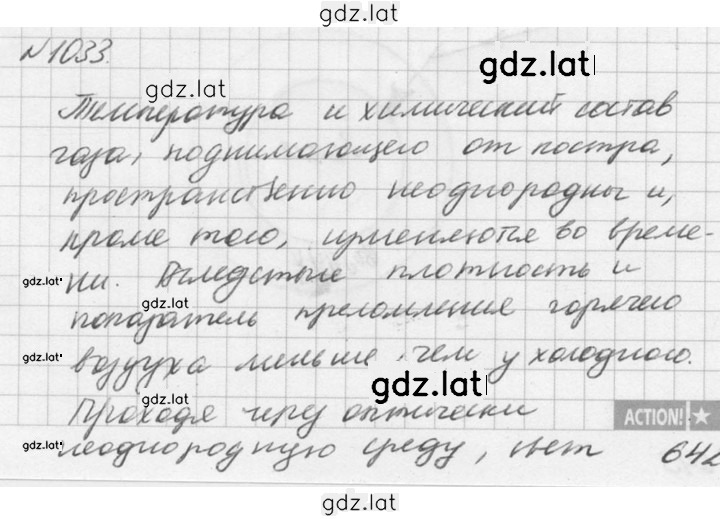 gdz.lat
№1033.
gdz.lat
gdz.lat
Температура и химический состав
газа, поднимающего от костра,
пространственно неоднородны и,
кроме того, изменяются во време-
gdz.lat
ни. Вследствие плотность и
gdz.lat
показатель преломления горячего
gdz.lat
воздуха меньше, чем у холодного.
gdz.lat
Проходя через оптически
ACTION!
gdz.lat
неоднородную среду, свет
642
gdz.lat